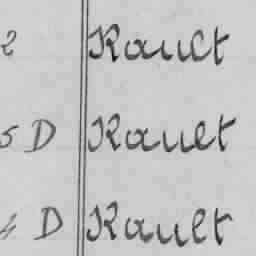 2 Rault
5 D Rault
4 D Rault